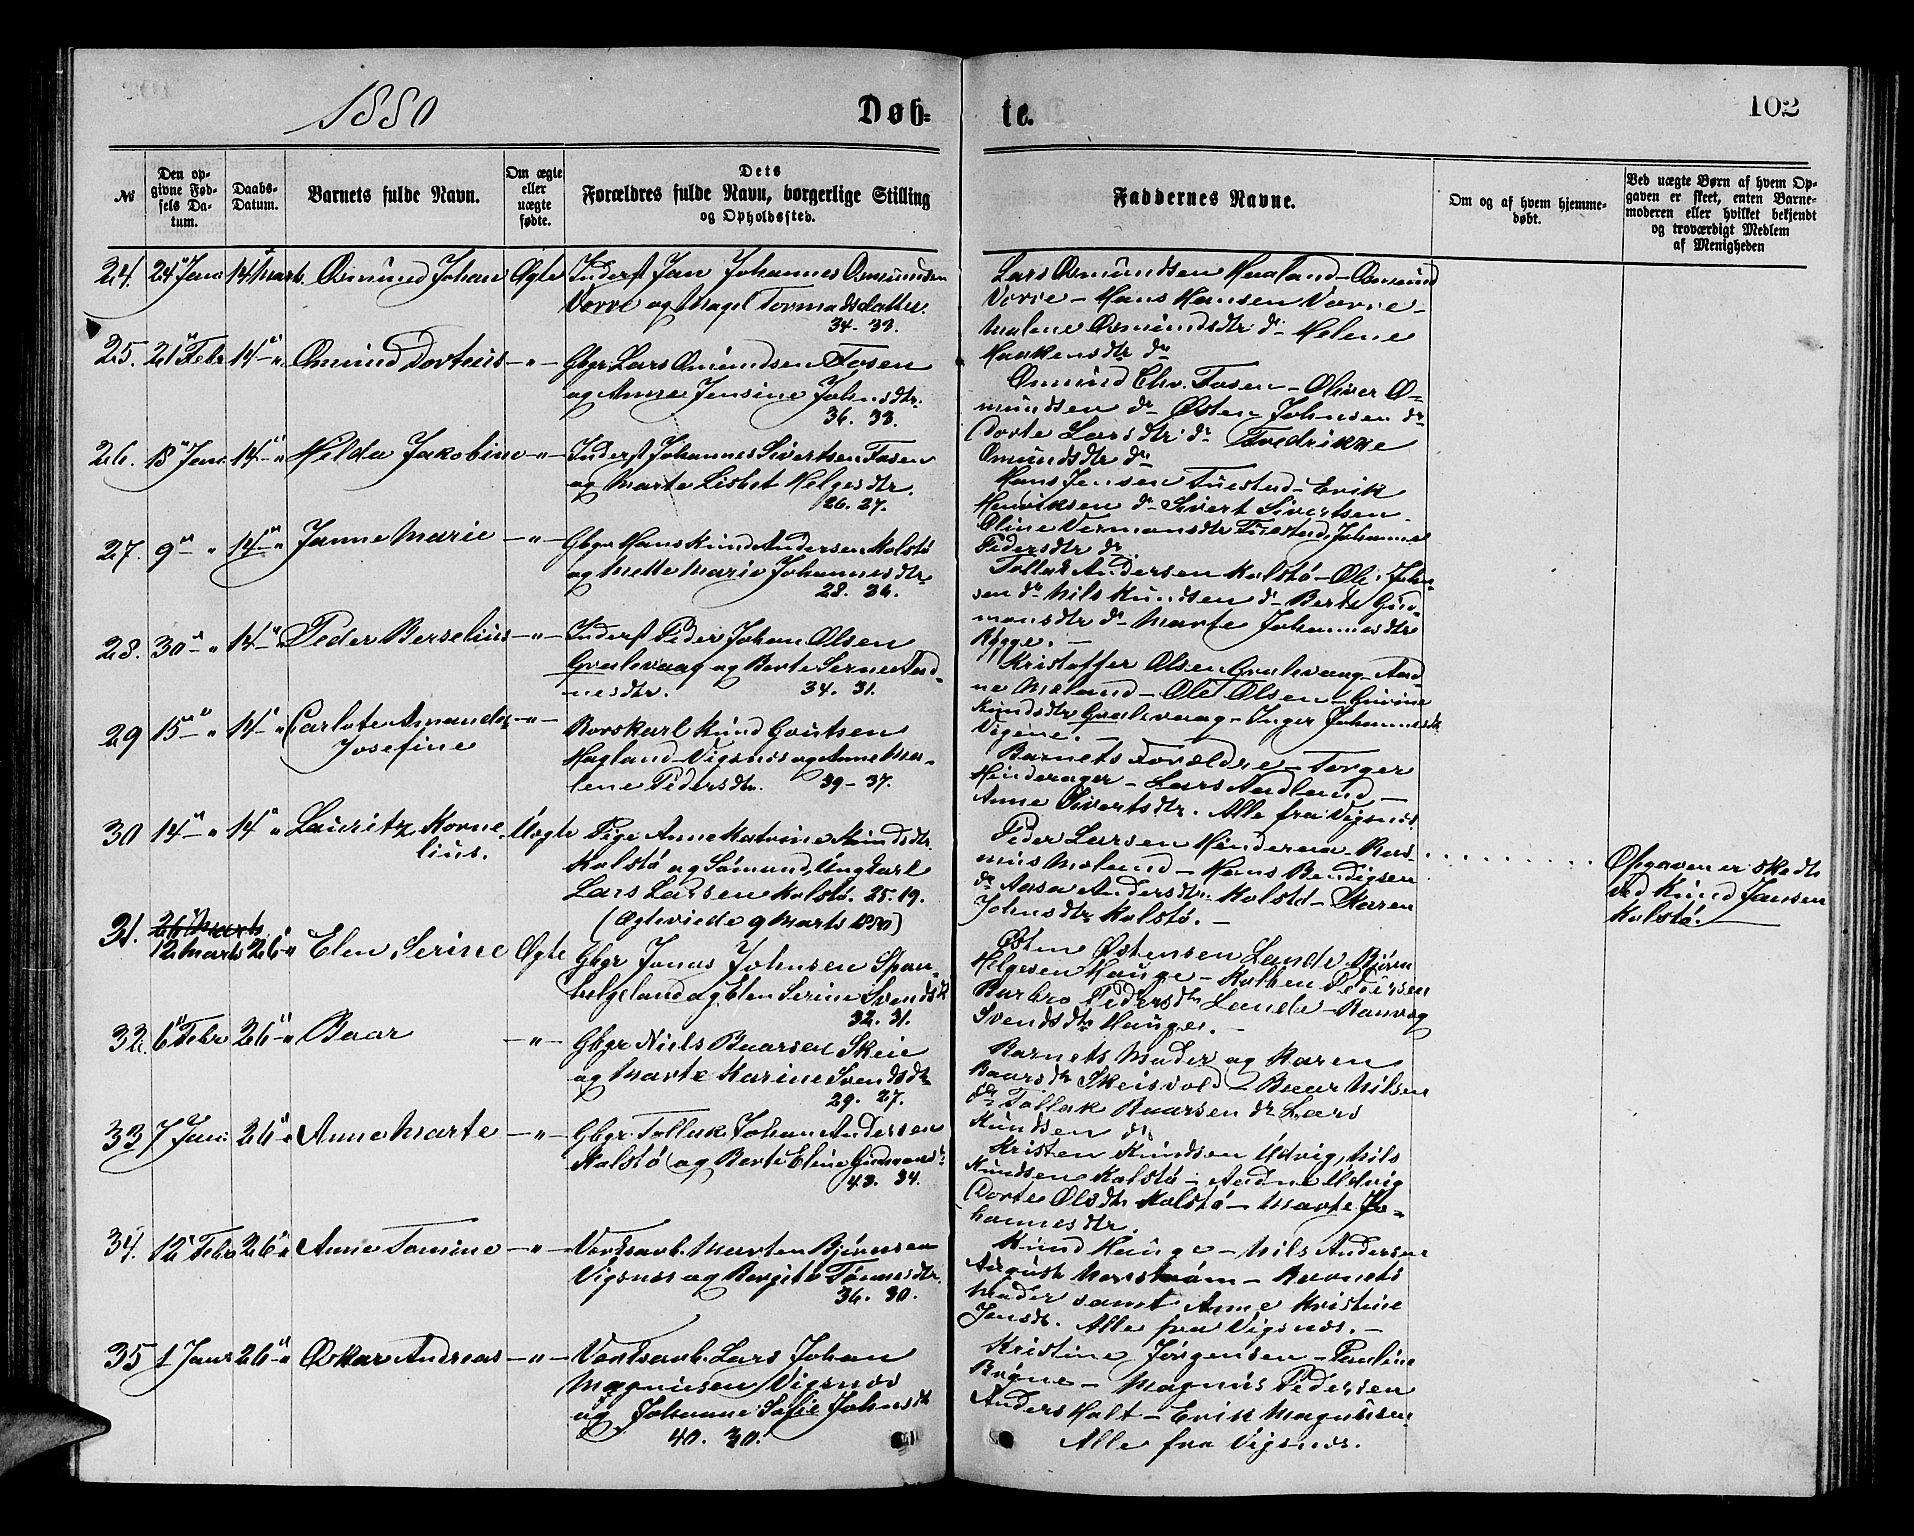 1880
Døb-
te.
102
№
Den op-
givne Fød-
sels Da-
tum.
Daabs-
Datum.
Barnets fulde Navn.
Om ægte
eller
uægte
fødte.
Dets
Forældres fulde Navn, borgerlige Stilling
og Opholdssted.
Faddernes Navne.
Om og af hvem hjemme-
døbt.
Ved uægte Børn af hvem Op-
gaven er skeet, enten Barne-
moderen eller hvilket bekjendt
og troværdigt Medlem
af Menigheden
24. 24 Jan 14 Marts. Osmund Johan Ægte Inderst Jan Johannes Osmundsen
Vorre og Magl Tormodsdatter.
34-33.
Lars Osmundsen Haaland - Osmund
Vorre - Hans Hansen Vorre -
Malene Osmundsdtr do Helene
Haakensdtr do
25. 21 Febr 14 - " Omund Dortius - " - Gbgr Lars Omundsen Fosen
og Anne Jensine Johnsdtr.
36. 33.
Omund Chr. Fosen - Oliver O-
mundsen do Østen Johnsen do
Dorte Larsdtr do Fredrikke
Omundsdtr do
26. 18 Jan 14 - " Hilda Jakobine - " - Inderst Johannes Sivertsen Fosen
og Marte Lisbet Helgesdtr.
26. 27.
Hans Jensen Tuestad - Erik
Henriksen do Sivert Sivertsen
Oline Vermonsdtr Tuestad, Johanne
Pedersdtr do.
27. 9 - " 14 - " Janne Marie - " - Gbgr Hans Knud Andersen Kolstø
og Mette Marie Johannesdtr
28. 26.
Tollak Andersen Kolstø - Ole Johan-
sen do Nils Knudsen do Berte Gud-
monsdtr do Marte Johannesdtr
Bygge. -
28. 30 - " 14 - " Peder Berselius - " - Inderst Peder Johan Olsen
Gralevaag og Berte Serine Aad-
nesdtr. 34. 31.
Kristoffer Olsen Gralevaag - Aad-
ne Meland - Ole Olsen - Gurine
Knudsdtr Gralevaag - Inger Johannesdtr
Vigene. -
29 15 - " 14 - " Carlote Amanda
Josefine - " - Borskarl Knud Goutsen
Hagland - Vigsnæs og Anne Ma-
lene Pedersdtr. 39 - 37.
Barnets Forældre - Torger
Hinderager - Lars Aadland -
Anne Sivertsdtr. Alle fra Vigsnæs.
30 14 - " 14 " Lauritz Korne-
lius. Uægte Pige Anne Katrine Knudsdtr.
Kolstø og Sømand, Ungkarl
Lars Larsen Kolstø. 25. 19.
(Ægteviede 9 Marts 1880)
Peder Larsen Hinderaa - Ras-
mus Meland - Hans Bendigsen
do Aasa Andersdtr. Kolstø - Karen
Johnsdtr Kolstø. -
Opgaven er skedt
ved Knud Jansen
Kolstø.
31. 26 Marts
12 Marts 26 " Elen Serine Ægte Gbgr Jonas Johnsen Span-
helgeland og Elen Serine Svendsdtr
32. 31.
Østen Østensen Lande - Bjørn
Helgesen Hauge - Kolben Pedersen
Barbro Pedersdtr Lande - Ranvag
Svendsdtr Hauge. -
32. 6 Febr 26 - " Baar - " - Gbgr Niels Baarsen Skeie
og Marte Karine Svendsdtr
29. 27.
Barnets Moder og Karen
Baarsdtr Skeisvold - Baar Nilsen
do Tollak Baarsen do Lars
Knudsen do
33 7 Jan 26 " Anne Marte - " - Gbgr Tollak Johan Andersen
Kolstø og Berte Eline Gudmonsdtr
43. 34.
Kristen Knudsen Udvig, Nils
Knudsen Kolstø - Aadne Udvig
Dorte Olsdtr Kolstø - Marte Jo-
hannesdtr.
34. 12 Febr 26 " Anne Tomine - " - Verksarb. Morten Bjørnsen
Vigsnæs og Bergite Tønnesdtr.
36. 30.
Knud Hauge - Nils Andersen
August Norstrøm - Barnets
Moder samt Anne Kristine
Jensdtr. Alle fra Vigsnæs. -
35 1 Janr 26 - " Oskar Andreas - " - Verksarb. Lars Johan
Magnusen Vigsnæs
og Johanne Sofie Johnsdtr
40. 30.
Kristine Jørgensen - Pauline
Bøgne - Magnus Pedersen
Anders Holt - Erik Magnusen
Alle fra Vigsnæs.